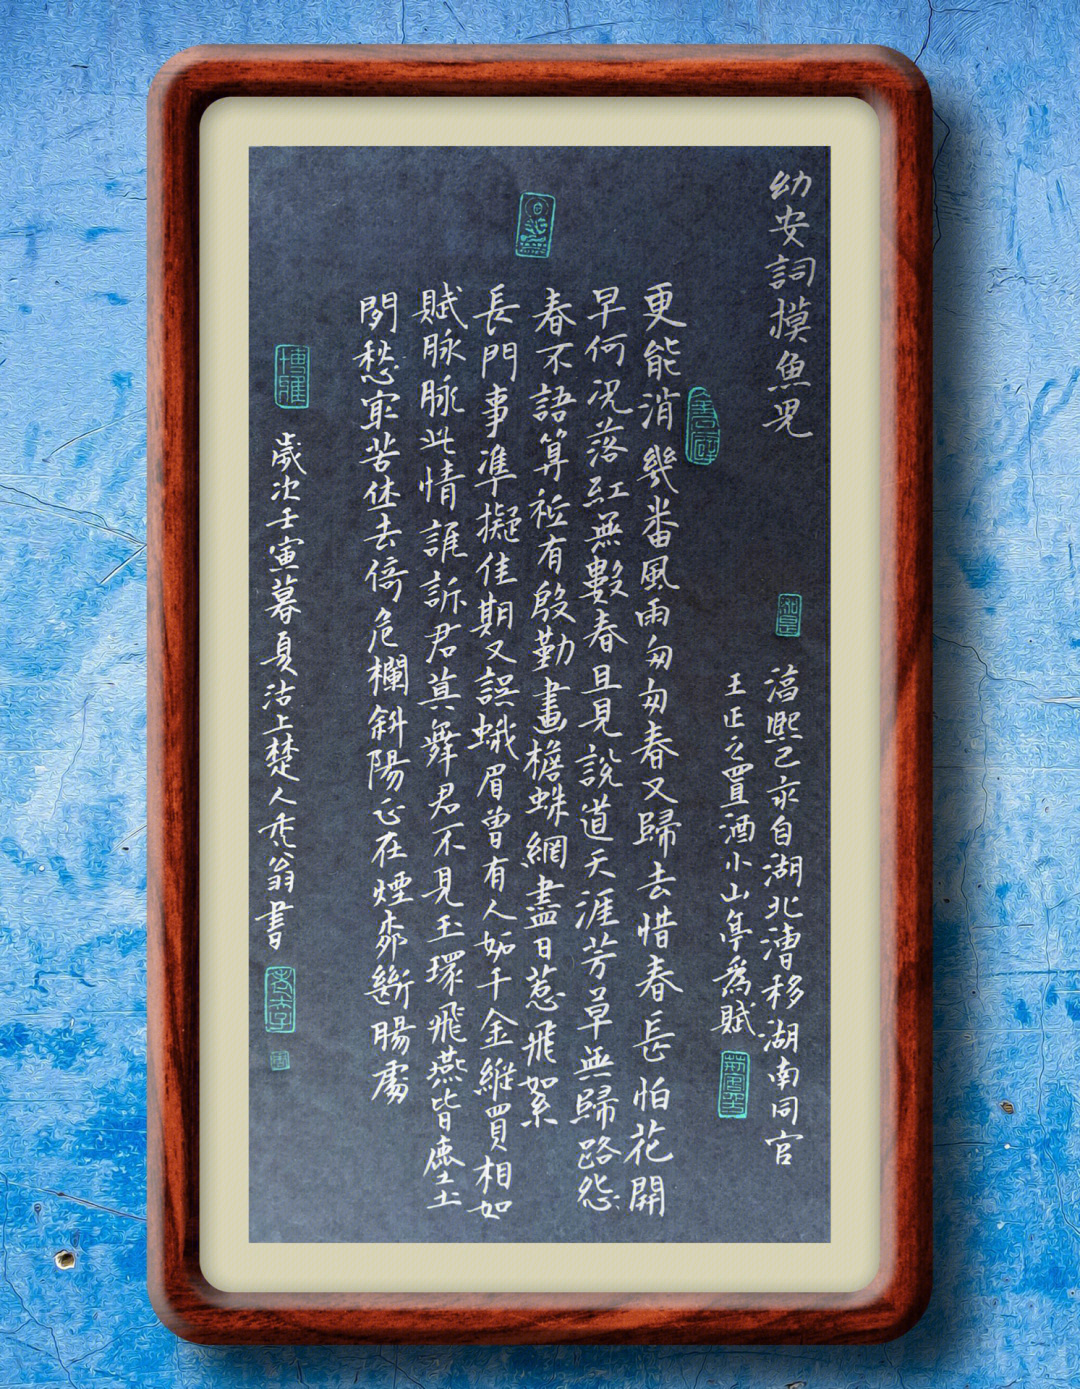 幼安詞摸魚兒
淳熙己亥自湖北漕移湖南同官
王正之置酒小山亭為賦
更能消幾番風雨匆匆春又歸去惜春長怕花開
早何況落紅無數春且見說道天涯芳草無歸路怨
春不語算祗有殷勤畫檐蛛網盡日惹飛絮
長門事準擬佳期又誤蛾眉曾有人妬千金縱買相如
賦脉脉此情誰訴君莫舞君不見玉環飛燕皆塵土
閑愁寂苦休去倚危欄斜陽正在煙柳斷腸處
歲次壬寅暮夏沽上楚人禿翁書
博雅